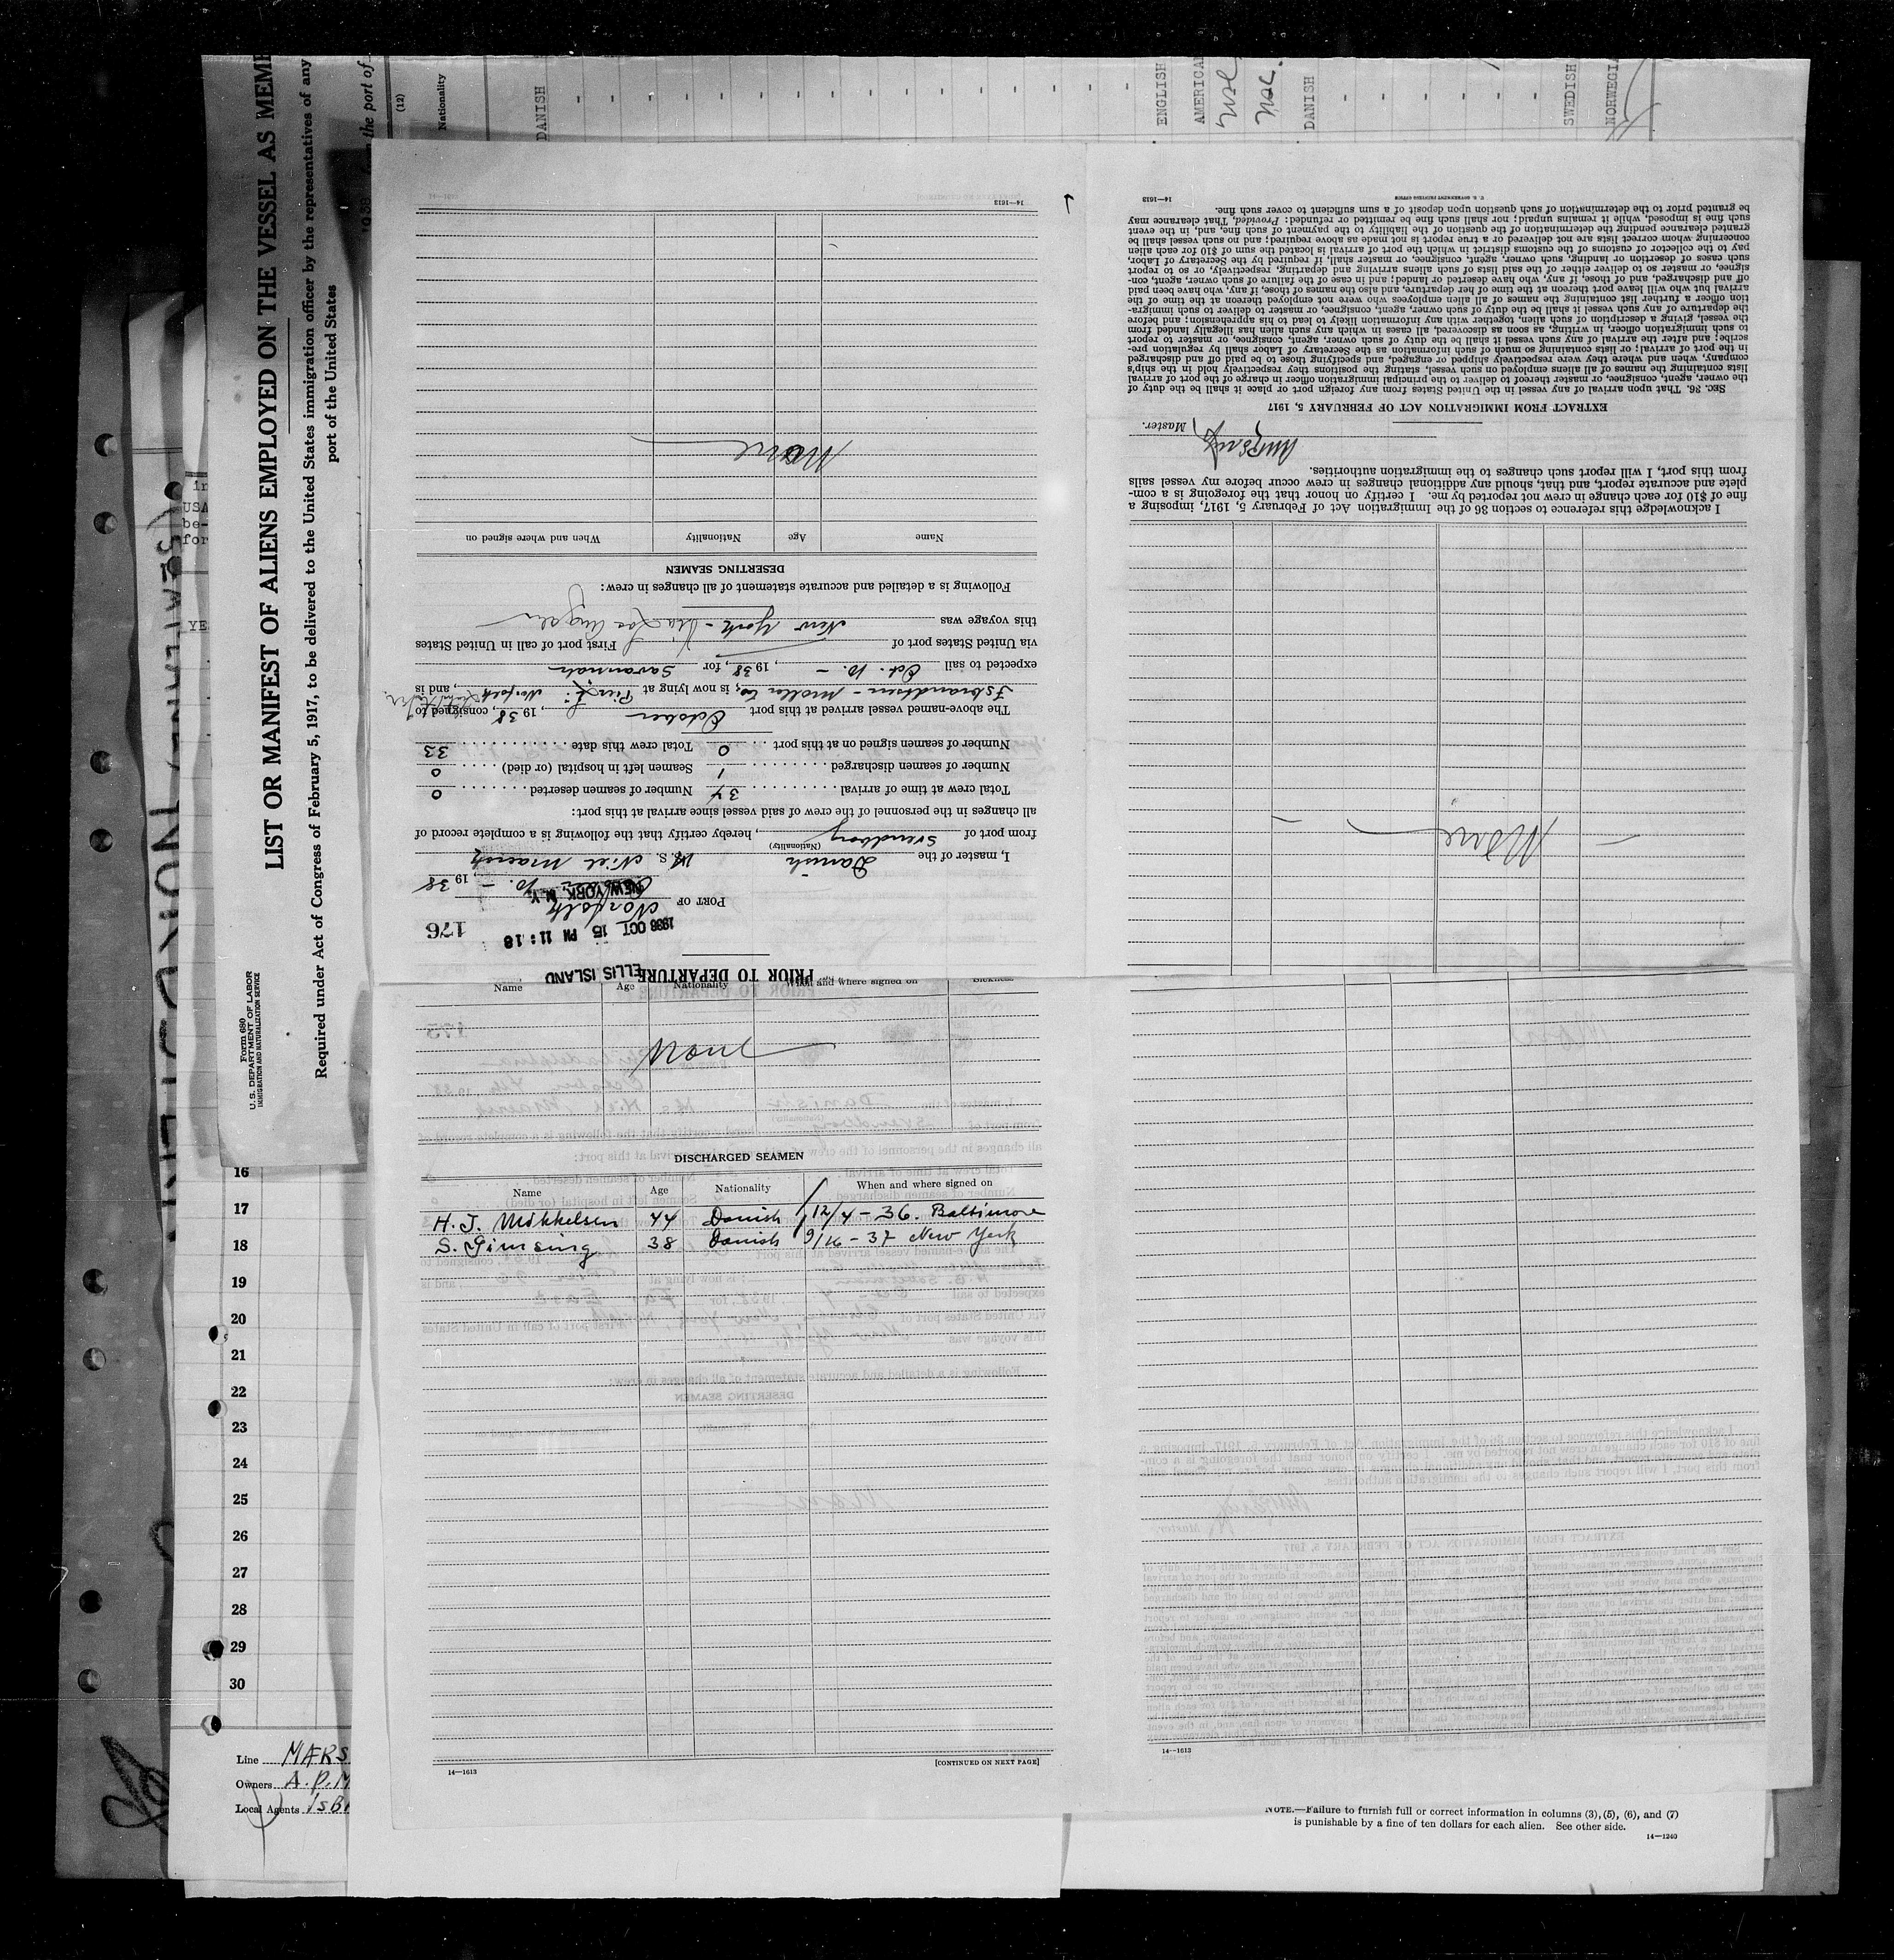 Form 680
U. S. DEPARTMENT OF LABOR
IMMIGRATION AND NATURALIZATION SERVICE
LIST OR MANIFEST OF ALIENS EMPLOYED ON THE VESSEL AS MEMB
Required under Act of Congress of February 5, 1917, to be delivered to the United States immigration officer by the representatives of any
port of the United States
the port of
(12)
Nationality
DANISH
ENGLISH
AMERICA
DANISH
SWEDISH
NORWEGIA
in
USA
be-
for
YE
PRIOR TO DEPARTURE
ELLIS ISLAND
1938 OCT 15 PM 11:18
176
PORT OF Norfolk
NEW YORK N.Y.
10. – , 1938
I, master of the Danish M. S. Niel Maersk
(Nationality)
from port of Svendborg, hereby certify that the following is a complete record of
all changes in the personnel of the crew of said vessel since arrival at this port:
Total crew at time of arrival 34 Number of seamen deserted 0
Number of seamen discharged 1 Seamen left in hospital (or died) 0
Number of seamen signed on at this port 0 Total crew this date 33
The above-named vessel arrived at this port October, 1938, consigned to
Isbrandtsen – Moller Co; is now lying at Pier L: Norfolk, and is
expected to sail Oct. 10. –, 1938, for Savannah
via United States port of First port of call in United States
this voyage was New York – via Los Angeles
Following is a detailed and accurate statement of all changes in crew:
DESERTING SEAMEN
Name Age Nationality When and where signed on
None
14—1613
None
I acknowledge this reference to section 36 of the Immigration Act of February 5, 1917, imposing a
fine of $10 for each change in crew not reported by me. I certify on honor that the foregoing is a com-
plete and accurate report, and that, should any additional changes in crew occur before my vessel sails
from this port, I will report such changes to the immigration authorities.
Master.
EXTRACT FROM IMMIGRATION ACT OF FEBRUARY 5, 1917
SEC. 36. That upon arrival of any vessel in the United States from any foreign port or place it shall be the duty of
the owner, agent, consignee, or master thereof to deliver to the principal immigration officer in charge of the port of arrival
lists containing the names of all aliens employed on such vessel, stating the positions they respectively hold in the ship's
company, when and where they were respectively shipped or engaged, and specifying those to be paid off and discharged
in the port of arrival; or lists containing so much of such information as the Secretary of Labor shall by regulation pre-
scribe; and after the arrival of any such vessel it shall be the duty of such owner, agent, consignee, or master to report
to such immigration officer, in writing, as soon as discovered, all cases in which any such alien has illegally landed from
the vessel, giving a description of such alien, together with any information likely to lead to his apprehension; and before
the departure of any such vessel it shall be the duty of such owner, agent, consignee, or master to deliver to such immigra-
tion officer a further list containing the names of all alien employees who were not employed thereon at the time of the
arrival but who will leave port thereon at the time of her departure, and also the names of those, if any, who have been paid
off and discharged, and of those, if any, who have deserted or landed; and in case of the failure of such owner, agent, con-
signee, or master so to deliver either of the said lists of such aliens arriving and departing, respectively, or so to report
such cases of desertion or landing, such owner, agent, consignee, or master shall, if required by the Secretary of Labor,
pay to the collector of customs of the customs district in which the port of arrival is located the sum of $10 for each alien
concerning whom correct lists are not delivered or a true report is not made as above required; and no such vessel shall be
granted clearance pending the determination of the question of the liability to the payment of such fine, and, in the event
such fine is imposed, while it remains unpaid; nor shall such fine be remitted or refunded: Provided, That clearance may
be granted prior to the determination of such question upon deposit of a sum sufficient to cover such fine.
U. S. GOVERNMENT PRINTING OFFICE 14—1613
Name Age Nationality When and where signed on Sickness
None
DISCHARGED SEAMEN
Name Age Nationality When and where signed on
H. J. Mikkelsen 44 Danish 12/4 – 36. Baltimore
S. Gimsing 38 Danish 9/16 – 37 New York
[CONTINUED ON NEXT PAGE]
14—1613
14—1613
16
17
18
19
20
21
22
23
24
25
26
27
28
29
30
Line MÆRS
Owners A. P. M
Local Agents ISBR
NOTE.—Failure to furnish full or correct information in columns (3), (5), (6), and (7)
is punishable by a fine of ten dollars for each alien. See other side.
14—1240